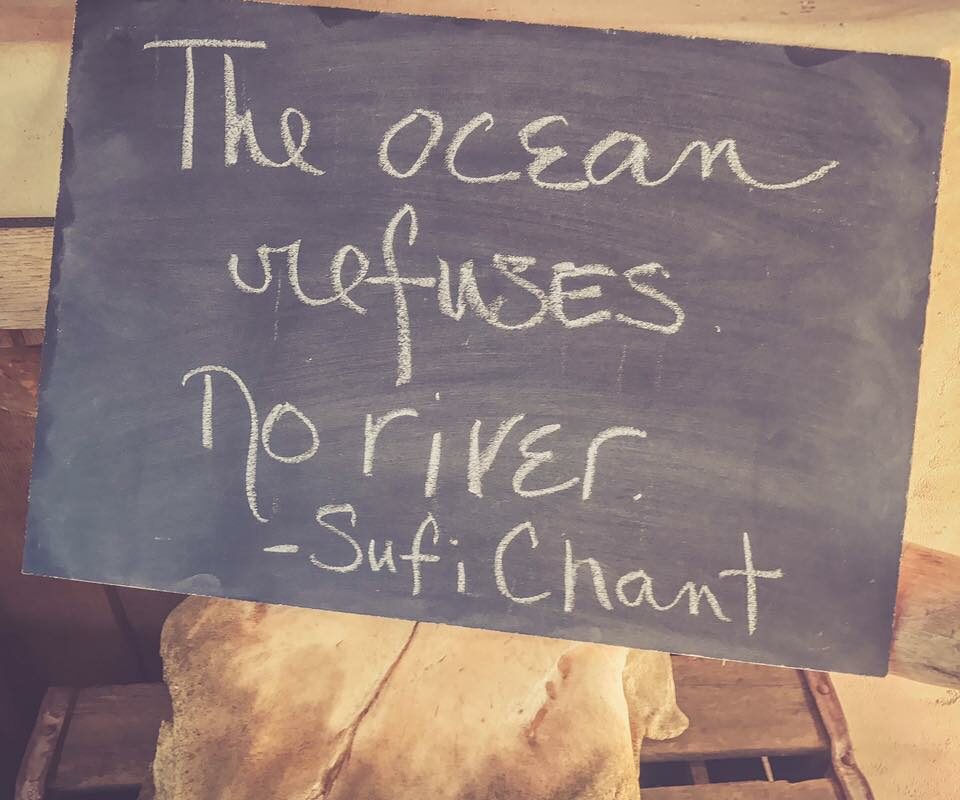 The ocean
refuses
no river.
-Sufi Chant